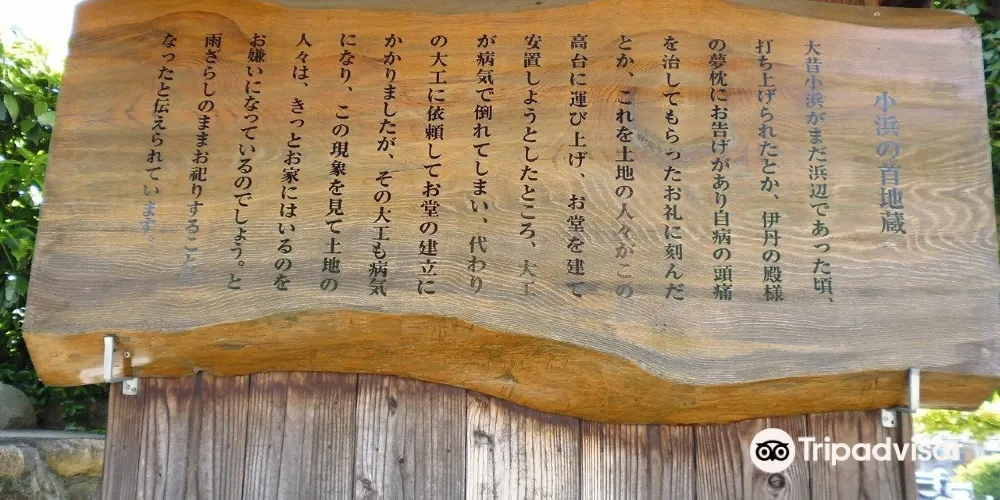 小浜の首地蔵
大昔小浜がまだ浜辺であった頃、
打ち上げられたとか、伊丹の殿様
の夢枕にお告げがあり自病の頭痛
を治してもらったお礼に刻んだ
とか、これを土地の人々がこの
高台に運び上げ、お堂を建て
安置しようとしたところ、大工
が病気で倒れてしまい、代わり
の大工に依頼してお堂の建立に
かかりましたが、その大工も病気
になり、この現象を見て土地の
人々は、きっとお家にはいるのを
お嫌いになっているのでしょう。と
雨ざらしのままお祀りすること
なったと伝えられています。
Tripadvisor